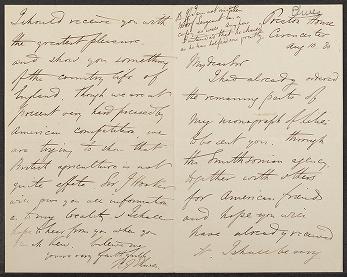 Preston House
Cirencester
Aug 10. 80
My dear Sir
I had already ordered
the remaining parts of
my monograph of Lilies
to be sent you through
the Smithsonian agency
together with others
for American friends
and hope you will
have already received
it. I shall be very
I should receive you with
the greatest pleasure
and show you something
of the country life of
England though we are at
present very hard pressed by
American competition, we
are trying to show that
British agriculture is not
quite effete. Sir J Hooker
will give you all information
as to my locality & I shall
hope to hear from you when you
reach here. believe me
yours very faithfully
H J Elwes